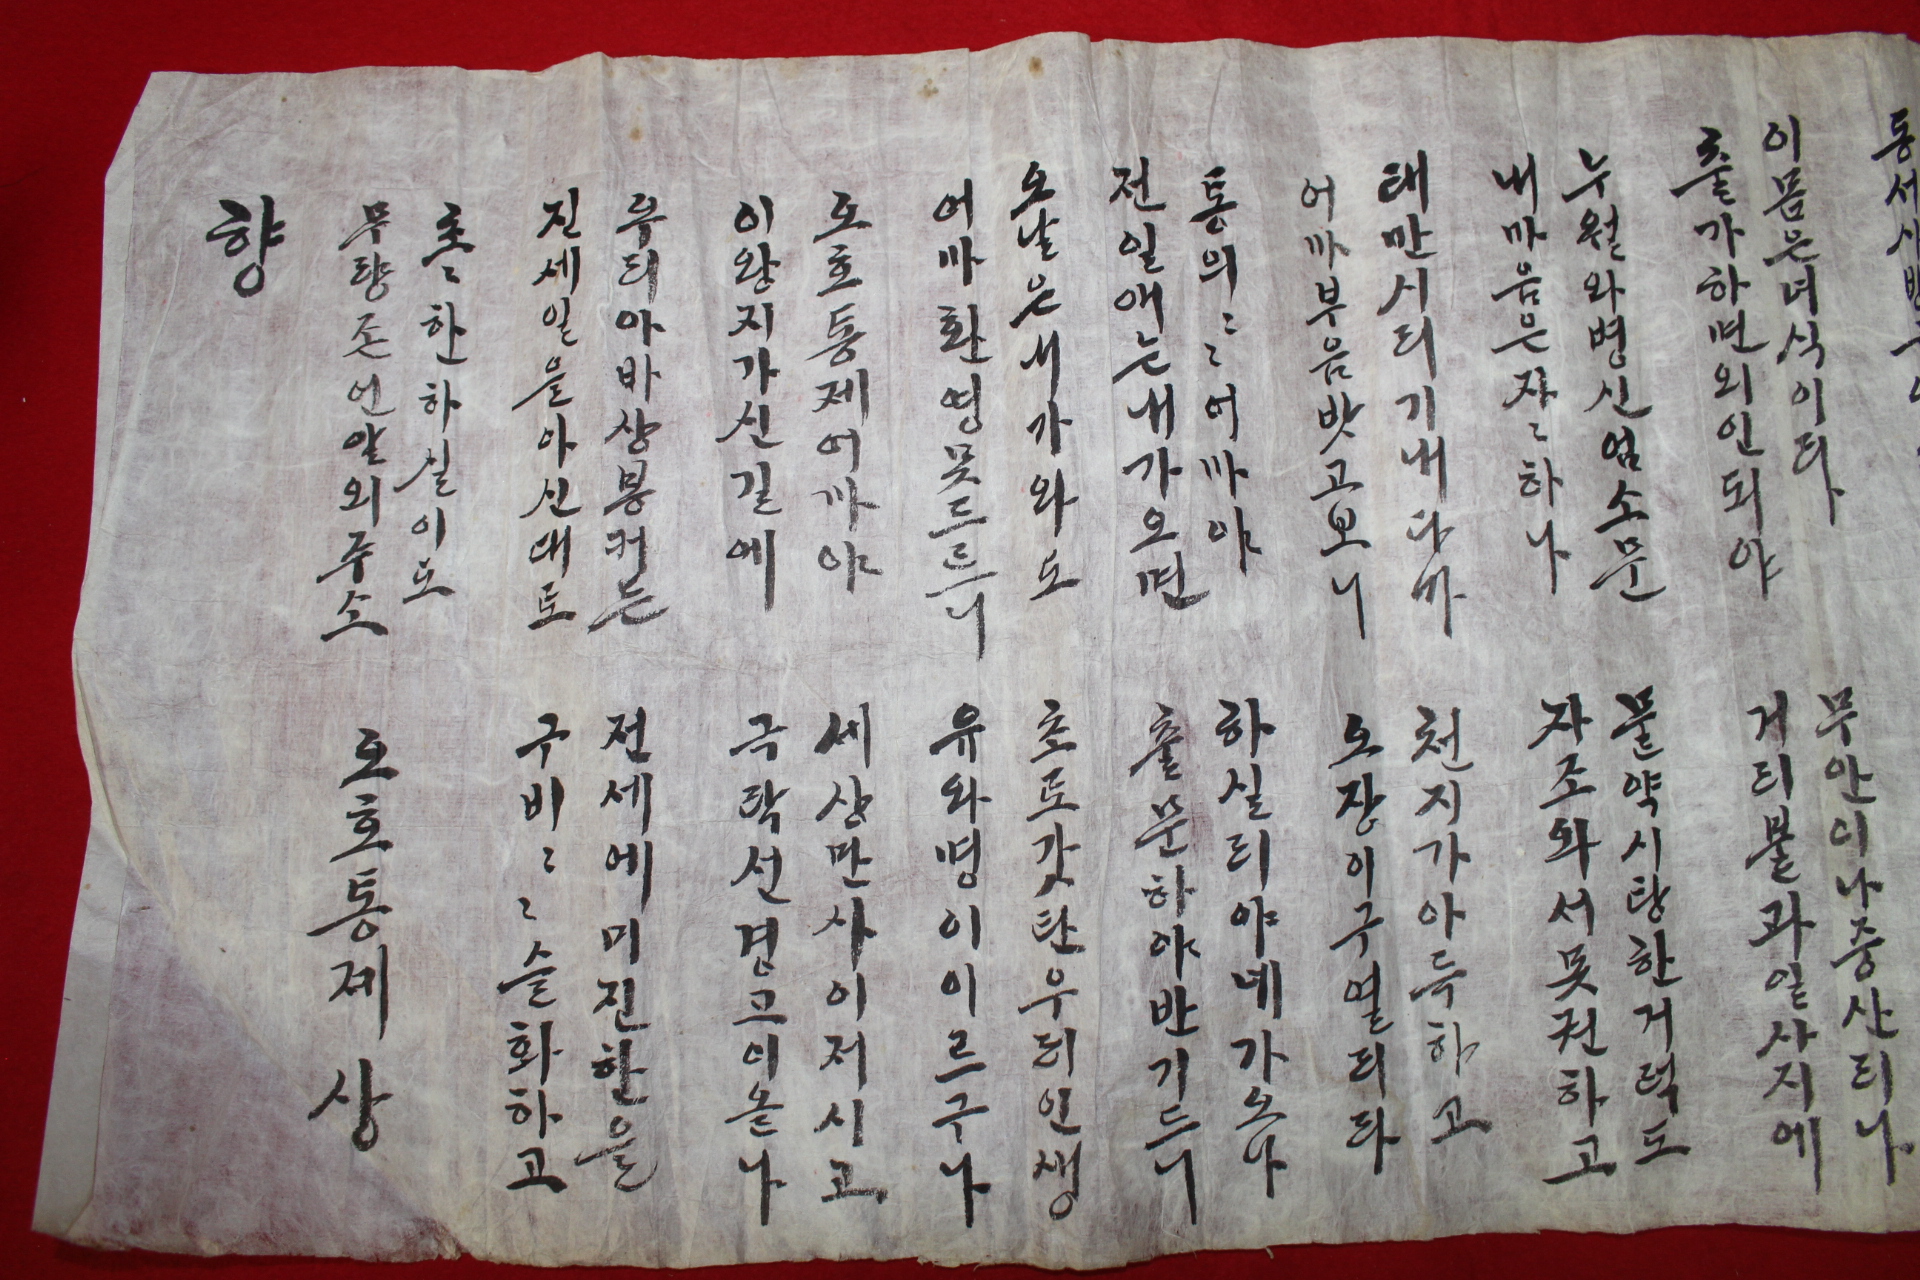 이몸은녀식이라
출가하면외인되야
무안이나중산리나
거리불과일사지에
누월와병신엄소문
내마음은자〻하나
물약시탕한거럭도
자조와서못권하고
태만시리기내다마
어마부음밧고보니
천지가아득하고
오장이구열리라
통의〻〻어마야
전일애는내가오면
하실리야녜가오냐
출문하야반기드니
오날은내가와도
어마환영못드르니
초로갓탄우리인생
유와명이이르구나
오호통제어마야
이왕지가신길에
세상만사이저시고
극락선경그이올나
우리아바상봉커든
진세일을아신대로
전세에미진한을
구비〻〻슬화하고
흠〻한하실이도
무량존언알외주소
오호통제 상
향